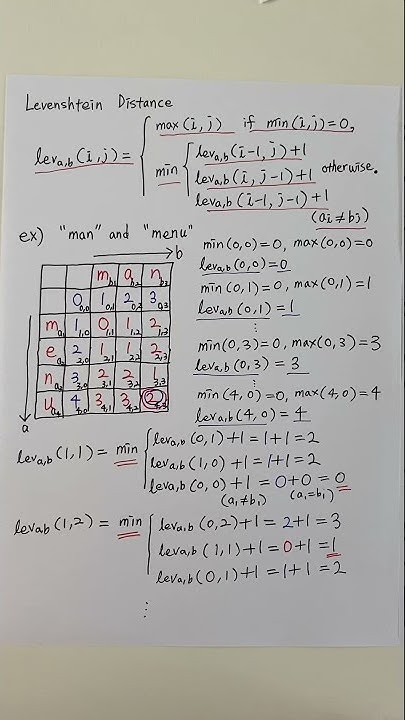 Levenshtein Distance
lev a,b (i,j) = { max(i,j) if min(i,j)=0,
min { lev a,b (i-1, j)+1
lev a,b (i, j-1)+1 otherwise.
lev a,b (i-1, j-1)+1
(ai≠bj)
ex) "man" and "menu"
→ b
m b1 a b2 n b3
0 0,0 1 0,1 2 0,2 3 0,3
m a1 1 1,0 0 1,1 1 1,2 2 1,3
e a2 2 2,0 1 2,1 1 2,2 2 2,3
n a3 3 3,0 2 3,1 2 3,2 1 3,3
u a4 4 4,0 3 4,1 3 4,2 2 4,3
a
min(0,0)=0, max(0,0)=0
lev a,b (0,0)=0
min(0,1)=0, max(0,1)=1
lev a,b (0,1)=1
⋮
min(0,3)=0, max(0,3)=3
lev a,b (0,3)=3
⋮
min(4,0)=0, max(4,0)=4
lev a,b (4,0)=4
lev a,b (1,1) = min { lev a,b (0,1)+1=1+1=2
lev a,b (1,0)+1=1+1=2
lev a,b (0,0)+1=0+0=0
(a1≠b1) (a1=b1)
lev ab (1,2) = min { lev a,b (0,2)+1=2+1=3
lev a,b (1,1)+1=0+1=1
lev a,b (0,1)+1=1+1=2
⋮